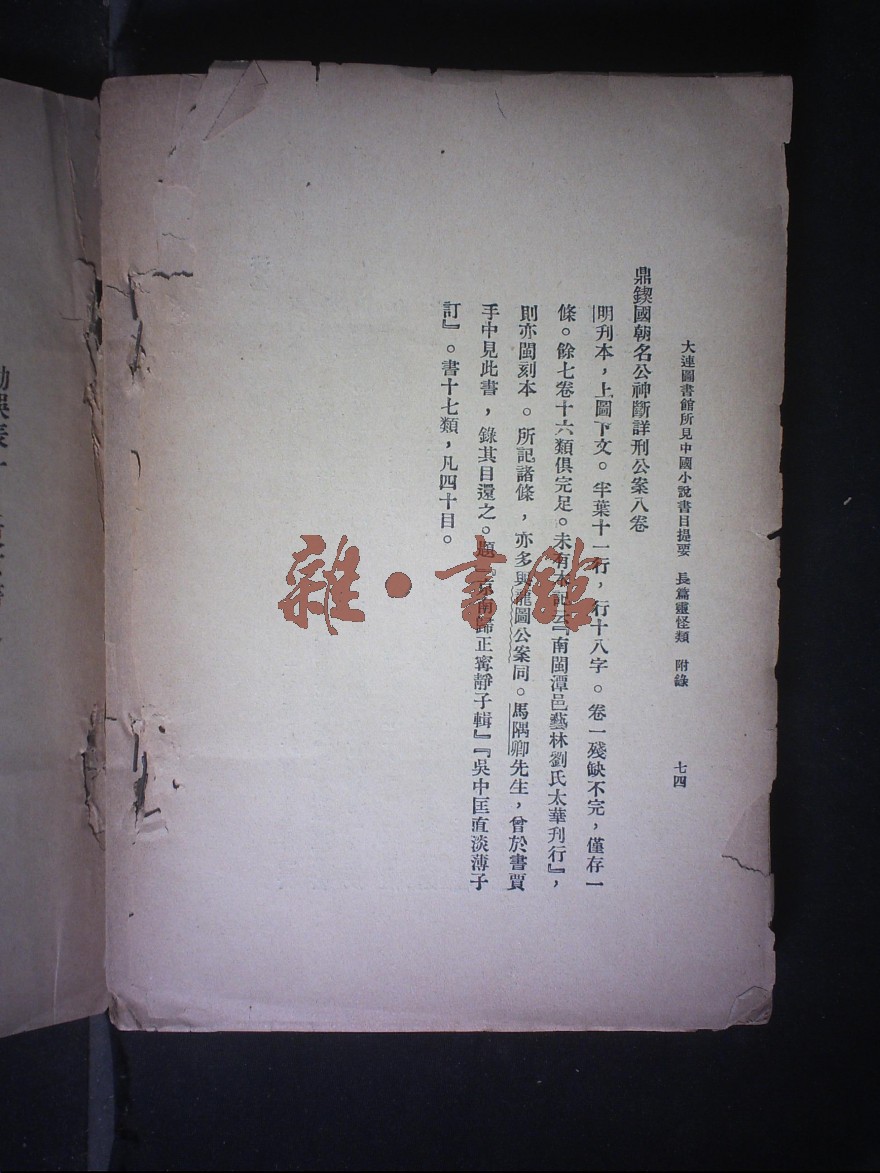 大連圖書館所見中國小說書目提要　長篇靈怪類　附錄　七四
鼎鍥國朝名公神斷詳刑公案八卷
明刋本，上圖下文。半葉十一行，行十八字。卷一殘缺不完，僅存一
條。餘七卷十六類俱完足。未有木記云『南閩潭邑藝林劉氏太華刋行』，
則亦閩刻本。所記諸條，亦多與龍圖公案同。馬隅卿先生，曾於書賈
手中見此書，錄其目還之。題『京南歸正寗靜子輯』『吳中匡直淡薄子
訂』。書十七類，凡四十目。
雜·書館